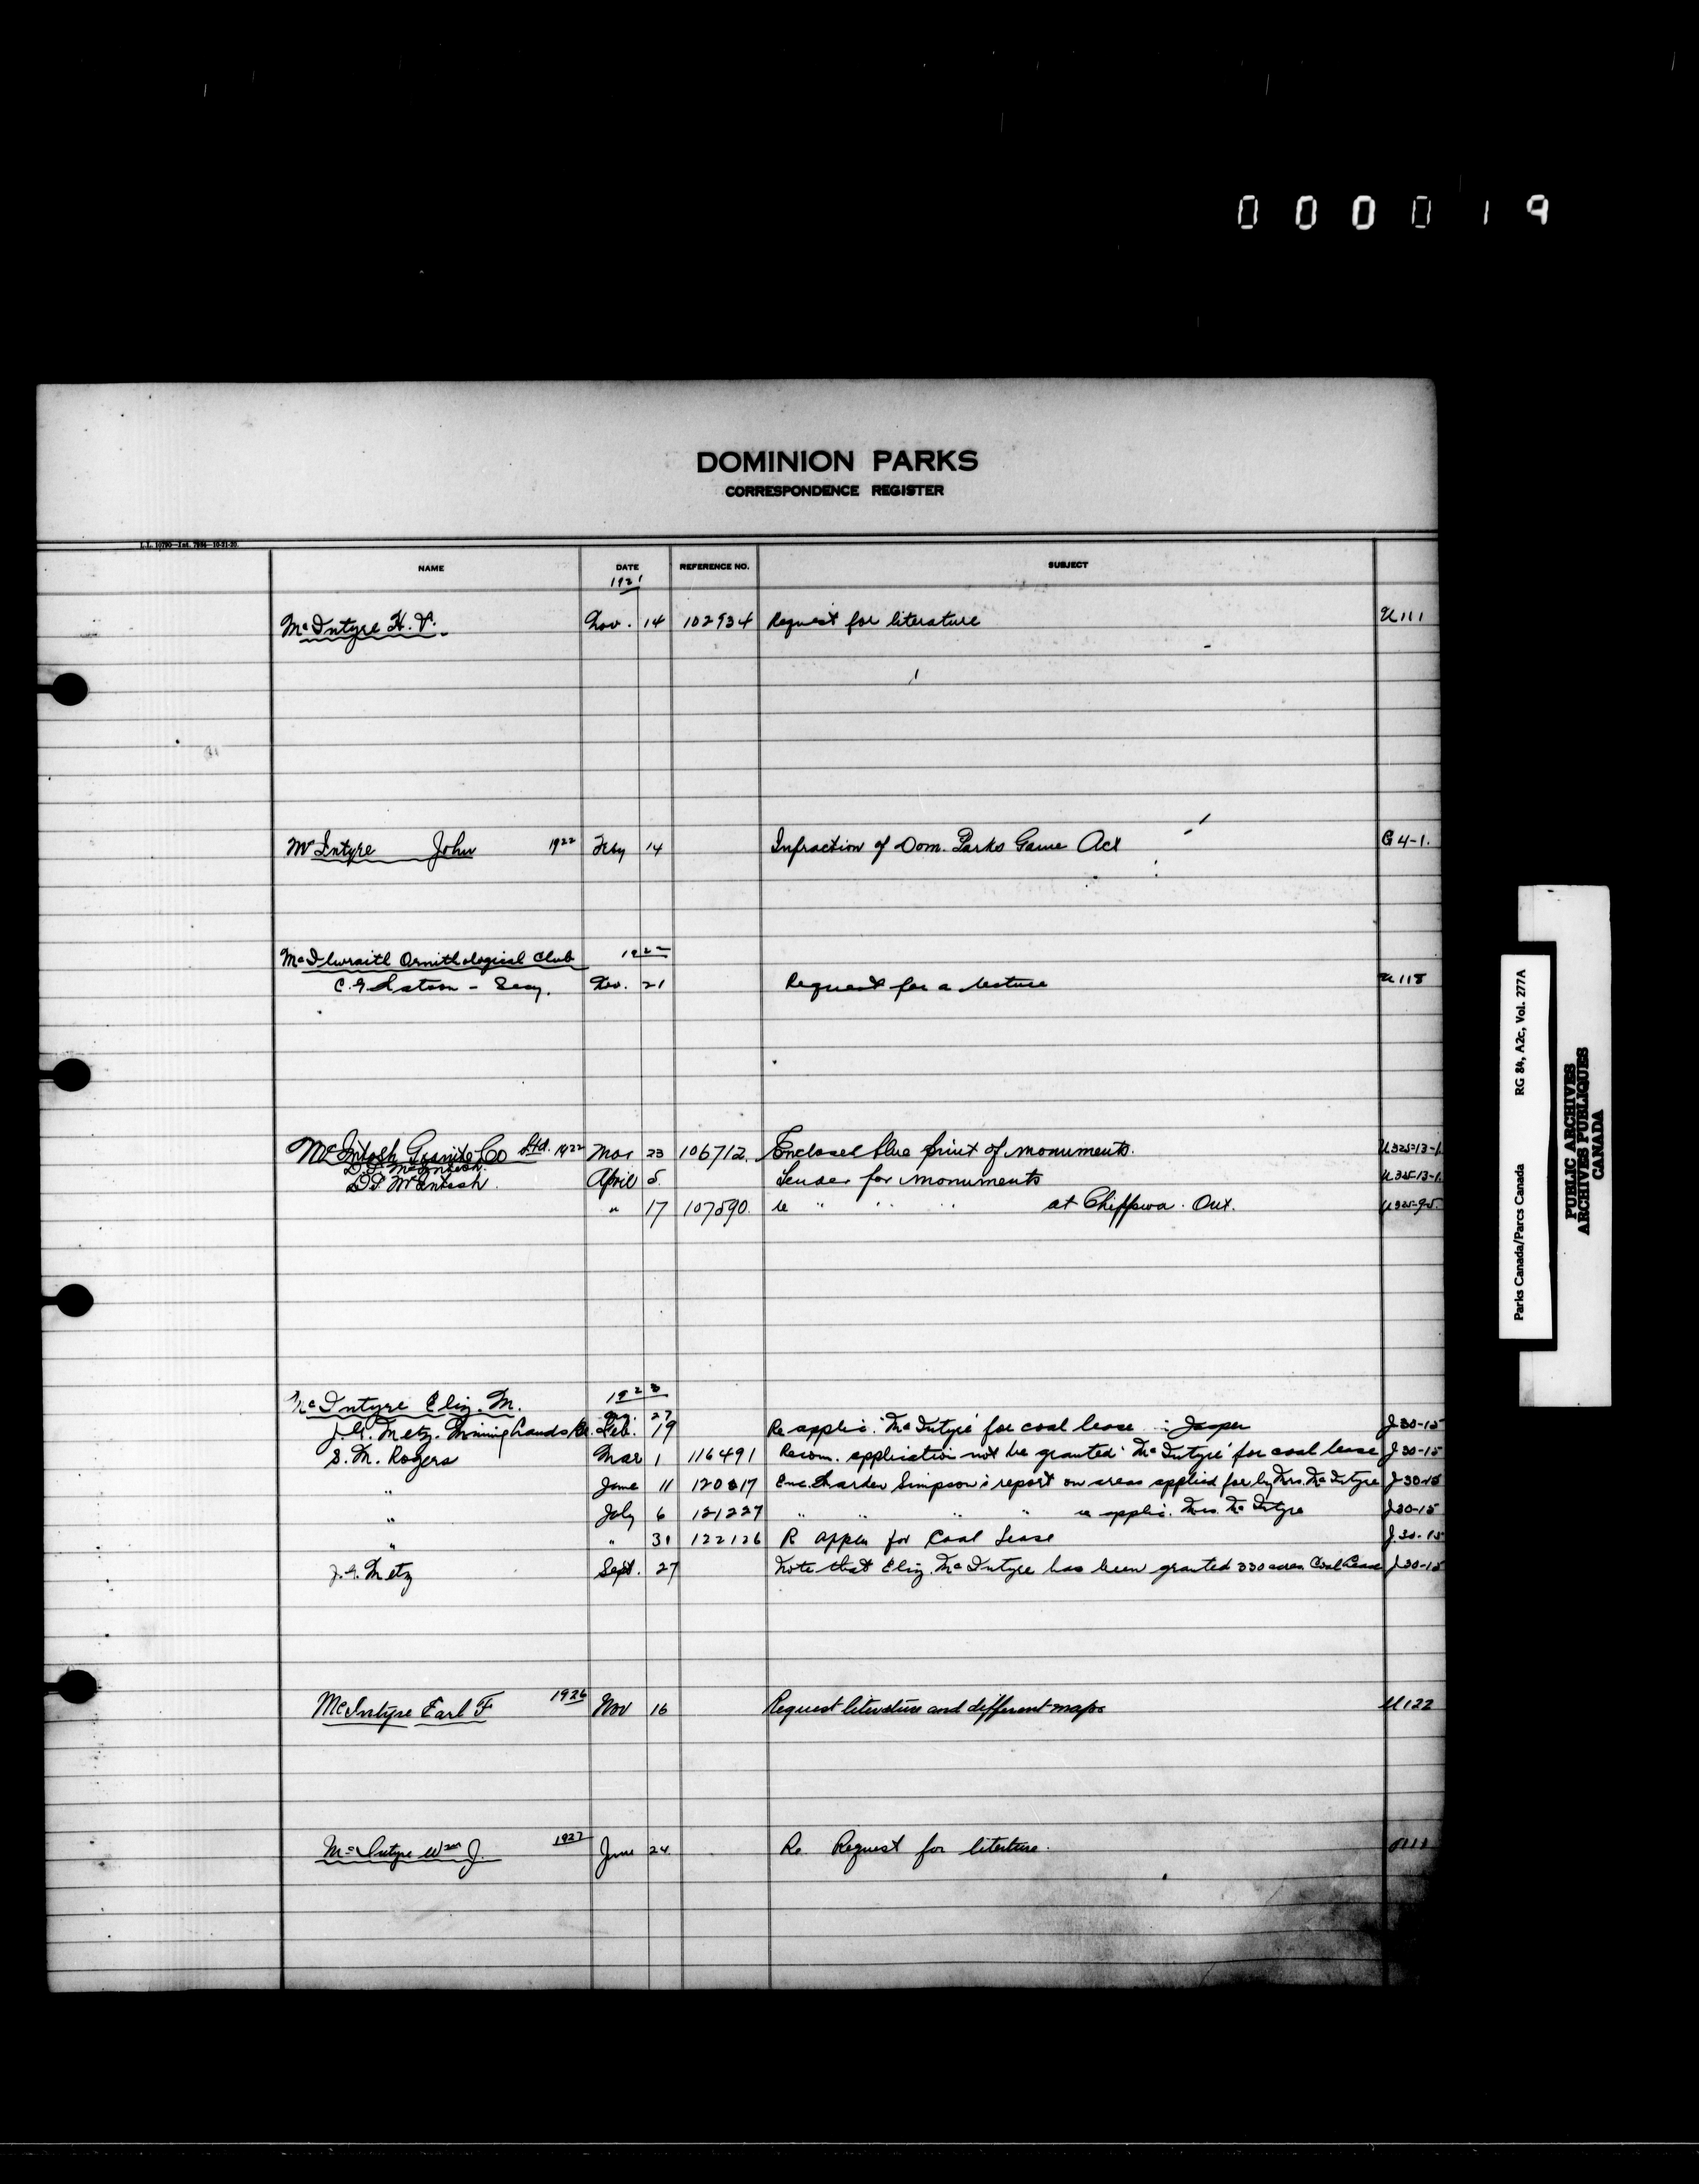 0 0 0 0 1 9
DOMINION PARKS
CORRESPONDENCE REGISTER
NAME DATE REFERENCE NO. SUBJECT
1921
McIntyre H. Nov. 14 102934 Request for literature U111
McIntyre John 1922 14 Infraction of Dom. Parks Game Act G 4-1.
McIlwraith Ornithological Club 1922
C. G. - Secy. 21 Request for a lecture U118
McIntosh Granite Co Ltd. 1922 Mar 23 106712. Enclosed blue print of monuments. U325-13-1
D.F. McIntosh.
D.F. McIntosh. April 5. Tender for monuments U325-13-1
" 17 107590. re " " " at Chippawa. Ont.
McIntyre Eliz. M. 1923
27
J.G. Metz. Mining Lands Br. Feb. 19 Re applic. "McIntyre" for coal lease : Jasper J30-15
S. M. Rogers Mar 1 116491 Recom. application not be granted "McIntyre" for coal lease J30-15
" June 11 120817 Enc. Warden Simpson's report on areas applied for by Mrs. McIntyre J30-15
" July 6 121227 " " " " re applic. Mrs. McIntyre J30-15
" " 30 122126 R appln for Coal Lease J.30-15
J.G. Metz Sept. 27 Note that Eliz. McIntyre has been granted 330 acres Coal Lease J30-15
McIntyre Earl F 1926 Nov 16 Request literature and different maps U122
McIntyre Wm J. 1927 June 24 Re Request for literture.
Parks Canada/Parcs Canada RG 84, A2c, Vol. 277A
PUBLIC ARCHIVES
ARCHIVES PUBLIQUES
CANADA